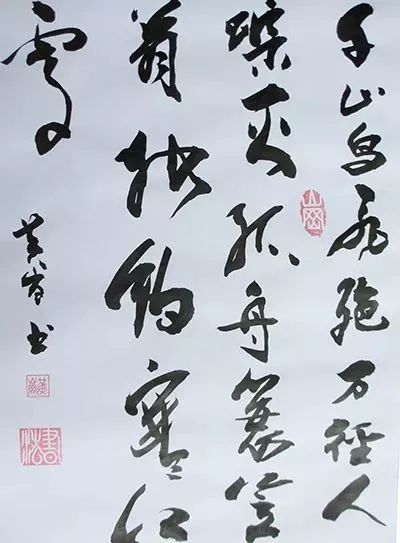 千山鸟飞絶万径人
踪灭孤舟蓑笠
翁独钓寒江
雪
书